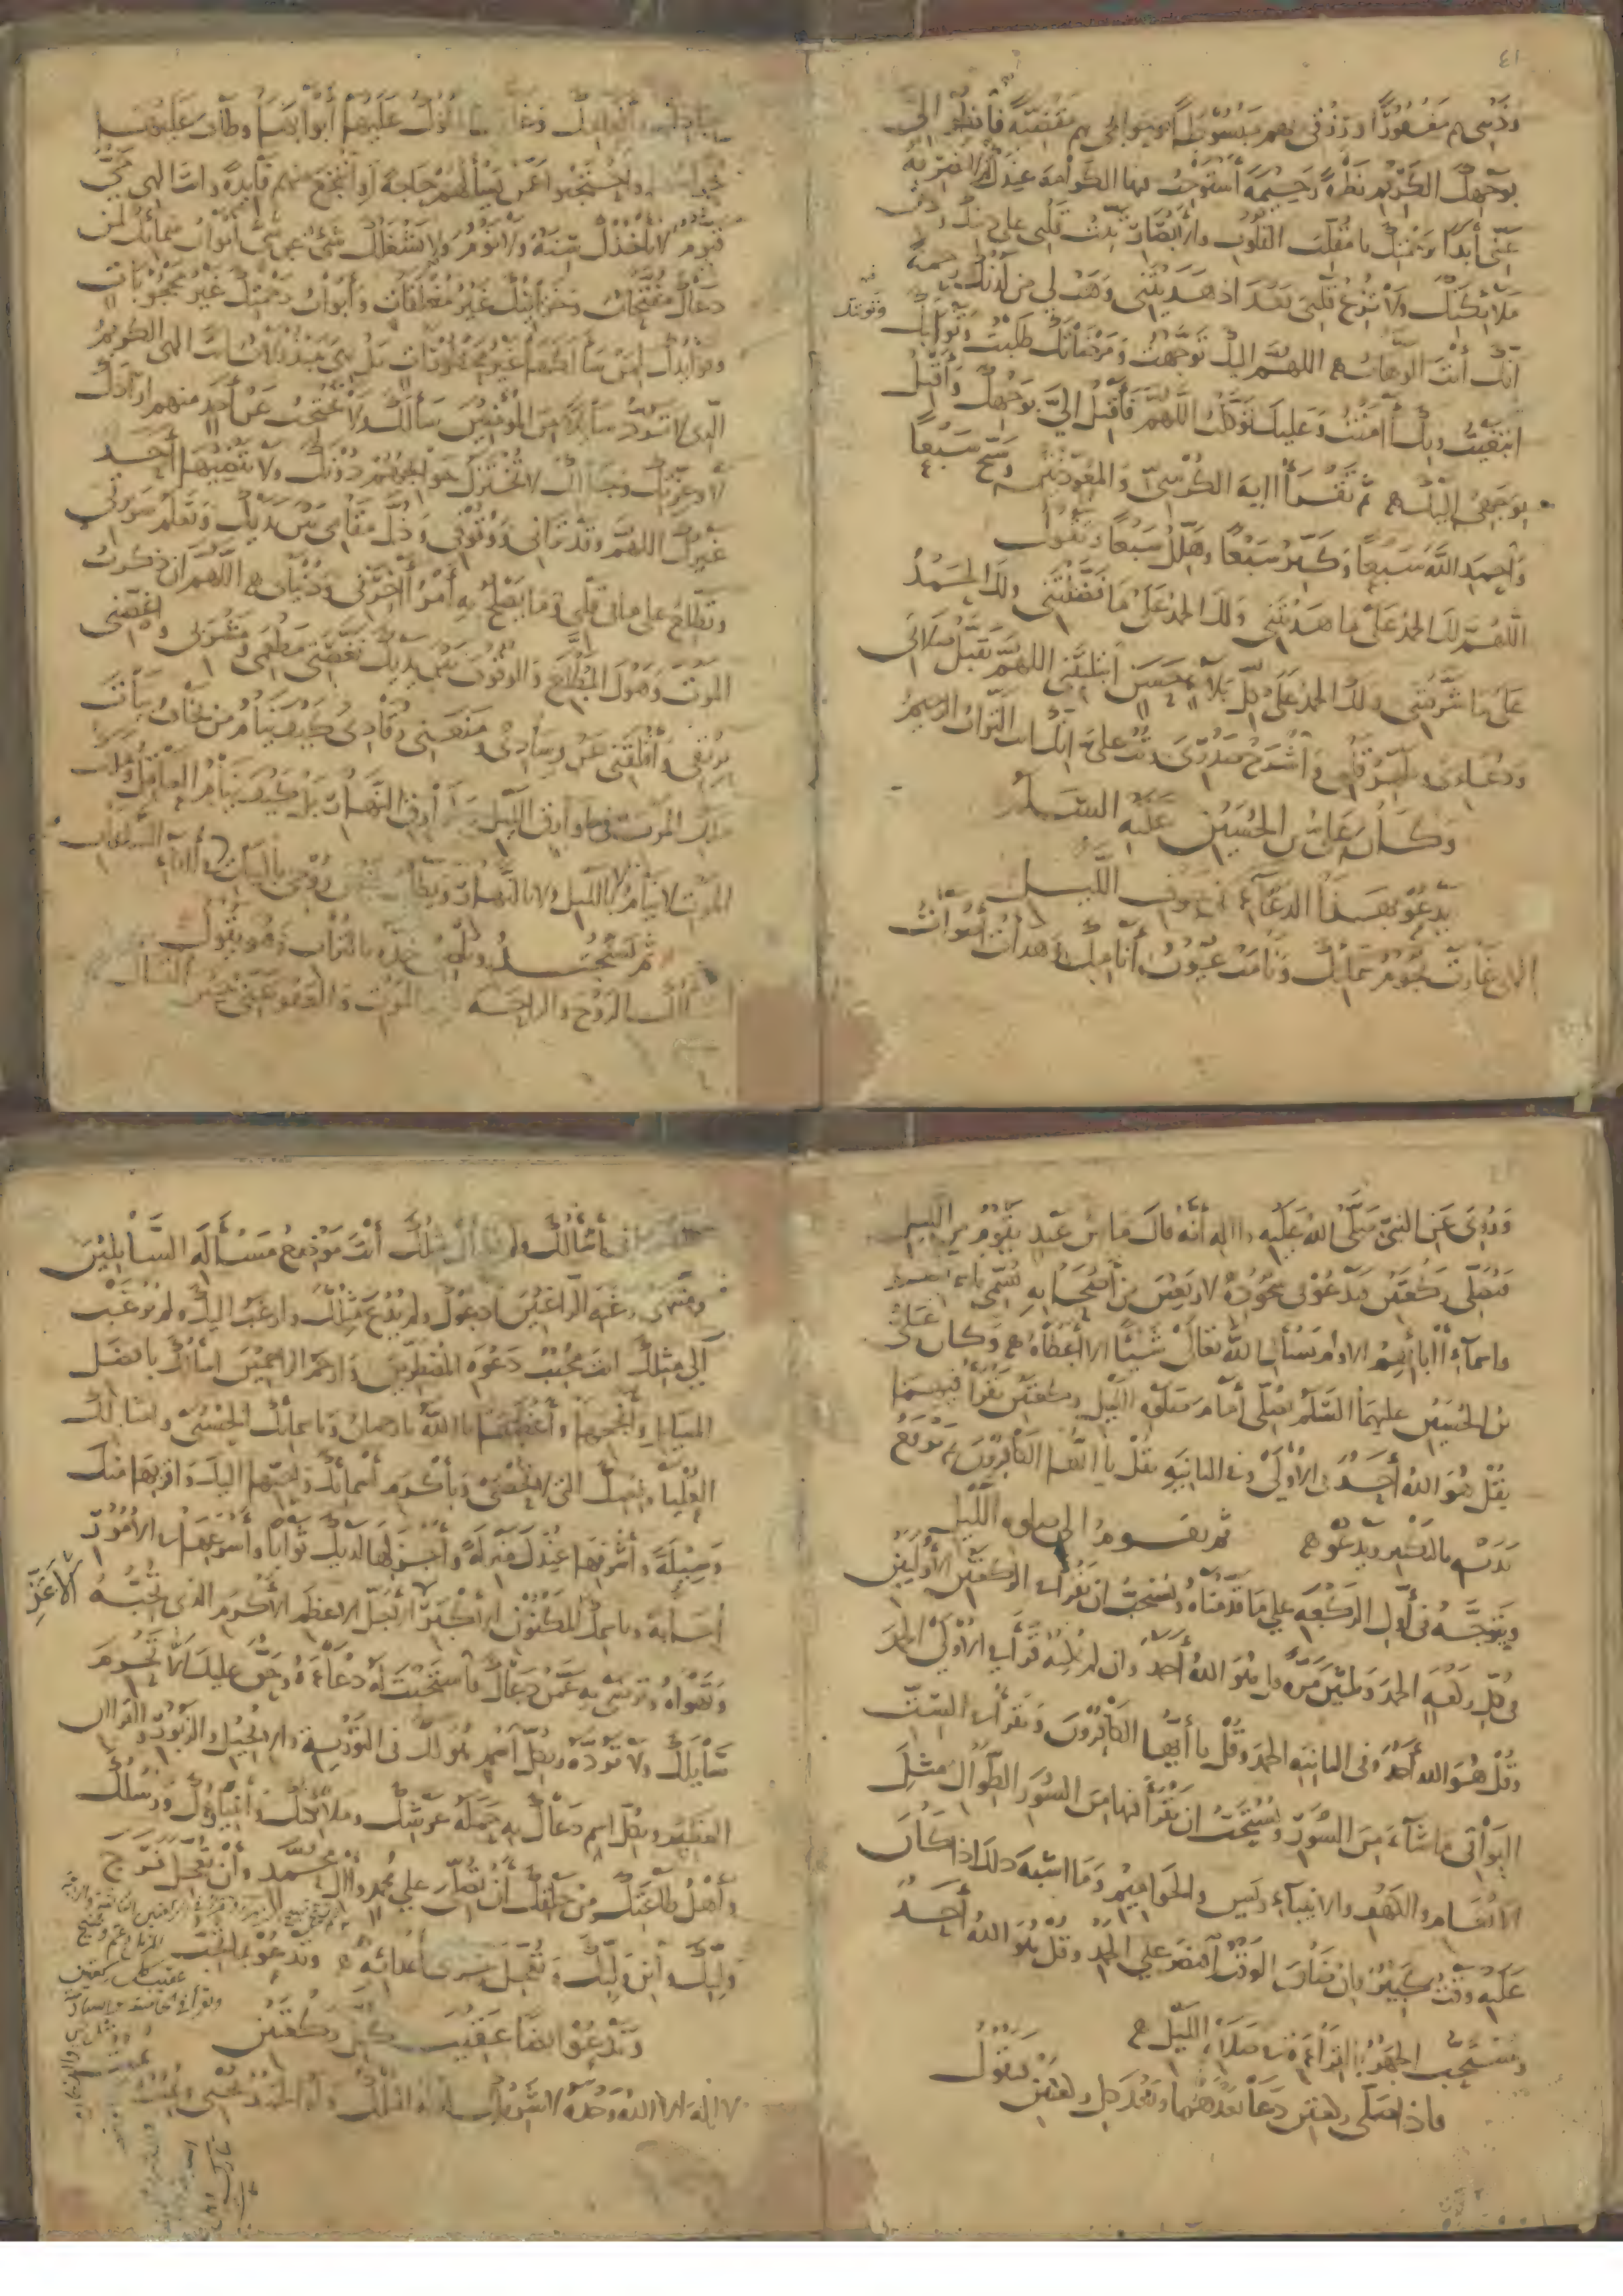 ٤١
وذنبي به مغفورا ورزقي بهم مبسوطا وحوائجي بهم مقضية فانظر إلي
بوجهك الكريم نظرة رحيمة أستوجب بها الكرامة عندك ثم لا تصرفه
عني أبدا برحمتك يا مقلب القلوب والأبصار ثبت قلبي على دينك ودين
ملائكتك ولا تزغ قلبي بعد إذ هديتني وهب لي من لدنك رحمة
إنك أنت الوهاب اللهم إليك توجهت ومرضاتك طلبت وثوابك
ابتغيت وبك آمنت وعليك توكلت اللهم فأقبل إلي بوجهك وأقبل
بوجهي إليك ثم تقرأ آية الكرسي والمعوذتين وسبح سبعا
واحمد الله سبعا وكبر سبعا وهلل سبعا وتقول
اللهم لك الحمد على ما هديتني ولك الحمد على ما فضلتني ولك الحمد
على ما شرفتني ولك الحمد على كل بلاء حسن ابتليتني اللهم تقبل صلاتي
ودعائي وطهر قلبي واشرح صدري وتب علي إنك أنت التواب الرحيم
وكان علي بن الحسين عليه السلام
يدعو بهذا الدعاء في جوف الليل
إلهي غارت نجوم سمائك ونامت عيون أنامك وهدأت أصوات
عبادك وأنعامك وغلقت الملوك عليها أبوابها وطاف عليها
حراسها واحتجبوا عمن يسألهم حاجة أو ينتجع منهم فائدة وأنت إلهي حي
قيوم لا تأخذك سنة ولا نوم ولا يشغلك شيء عن شيء أبواب سمائك لمن
دعاك مفتحات وخزائنك غير مغلقات وأبواب رحمتك غير محجوبات
وفوائدك لمن سألكها غير محظورات بل هي مبذولات أنت إلهي الكريم
الذي لا ترد سائلا من المؤمنين سألك ولا تحتجب عن أحد منهم أرادك
لا وعزتك وجلالك لا تختزل حوائجهم دونك ولا يقضيها أحد
غيرك اللهم وقد تراني ووقوفي وذل مقامي بين يديك وتعلم سريرتي
وتطلع على ما في قلبي وما يصلح به أمر آخرتي ودنياي اللهم إن ذكرت
الموت وهول المطلع والوقوف بين يديك نغصني مطعمي ومشربي وأغصني
بريقي وأقلقني عن وسادي ومنعني رقادي كيف ينام من يخاف بيات
ملك الموت في طوارق الليل وطوارق النهار بل كيف ينام العاقل وملك
الموت لا ينام لا بالليل ولا بالنهار ويطلب قبض روحي بالبيات وآناء الساعات
ثم يسجد ويلصق خده بالتراب وهو يقول
أسألك الروح والراحة عند الموت والعفو عني حين ألقاك
وروي عن النبي صلى الله عليه وآله أنه قال ما من عبد يقوم من الليل
فيصلي ركعتين فيدعو في سجوده لأربعين من أصحابه يسمي بأسمائهم
وأسماء آبائهم إلا ولم يسأل الله تعالى شيئا إلا أعطاه وكان علي
بن الحسين عليهما السلام يصلي أمام صلوة الليل ركعتين يقرأ فيهما
بقل هو الله أحد في الأولى وفي الثانية بقل يا أيها الكافرون ثم يرفع
يديه بالتكبير ويدعو ثم يقوم إلى صلوة الليل
ويتوجه في أول الركعة على ما قدمناه ويستحب أن يقرأ في الركعتين الأوليين
في كل ركعة الحمد وثلثين مرة قل هو الله أحد وإن لم يمكنه قرأ في الأولى الحمد
وقل هو الله أحد وفي الثانية الحمد وقل يا أيها الكافرون ويقرأ في الست
البواقي ما شاء من السور ويستحب أن يقرأ فيها من السور الطوال مثل
الأنعام والكهف والأنبياء ويس والحواميم وما أشبه ذلك إذا كان
عليه وقت كثير فإن ضاق الوقت اقتصر على الحمد وقل هو الله أحد
ويستحب الجهر بالقراءة في صلاة الليل
فإذا صلى ركعتين دعا بعدهما وبعد كل ركعتين فيقول
إني أسألك ولم يسأل مثلك أنت موضع مسألة السائلين
ومنتهى رغبة الراغبين أدعوك ولم يدع مثلك وأرغب إليك ولم يرغب
إلى مثلك أنت مجيب دعوة المضطرين وأرحم الراحمين أسألك بأفضل
المسائل وأنجحها وأعظمها يا الله يا رحمان وبأسمائك الحسنى وأمثالك
العليا ونعمك التي لا تحصى وبأكرم أسمائك وأحبها إليك وأقربها منك
وسيلة وأشرفها عندك منزلة وأجزلها لديك ثوابا وأسرعها في الأمور
إجابة وباسمك المكنون الأكبر الأجل الأعظم الأكرم الذي تحبه
الأعز
وتهواه وترضى به عمن دعاك فاستجبت له دعاءه وحق عليك ألا تحرم
سائلك ولا ترده وبكل اسم هو لك في التورية والإنجيل والزبور والقرآن
العظيم وبكل اسم دعاك به حملة عرشك وملائكتك وأنبياؤك ورسلك
وأهل طاعتك من خلقك أن تصلي على محمد وآل محمد وأن تعجل فرج
وليك وابن وليك وتعجل خزي أعدائه وتدعو بما تحب
وتدعو أيضا عقيب كل ركعتين
لا إله إلا الله وحده لا شريك له له الملك وله الحمد يحيي ويميت